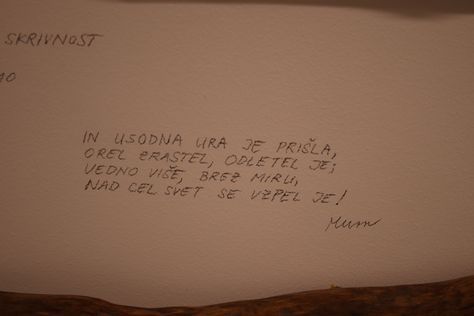 SKRIVNOST
IN USODNA URA JE PRIŠLA,
OREL ZRASTEL, ODLETEL JE;
VEDNO VIŠE, BREZ MIRU,
NAD CEL SVET SE VZPEL JE!